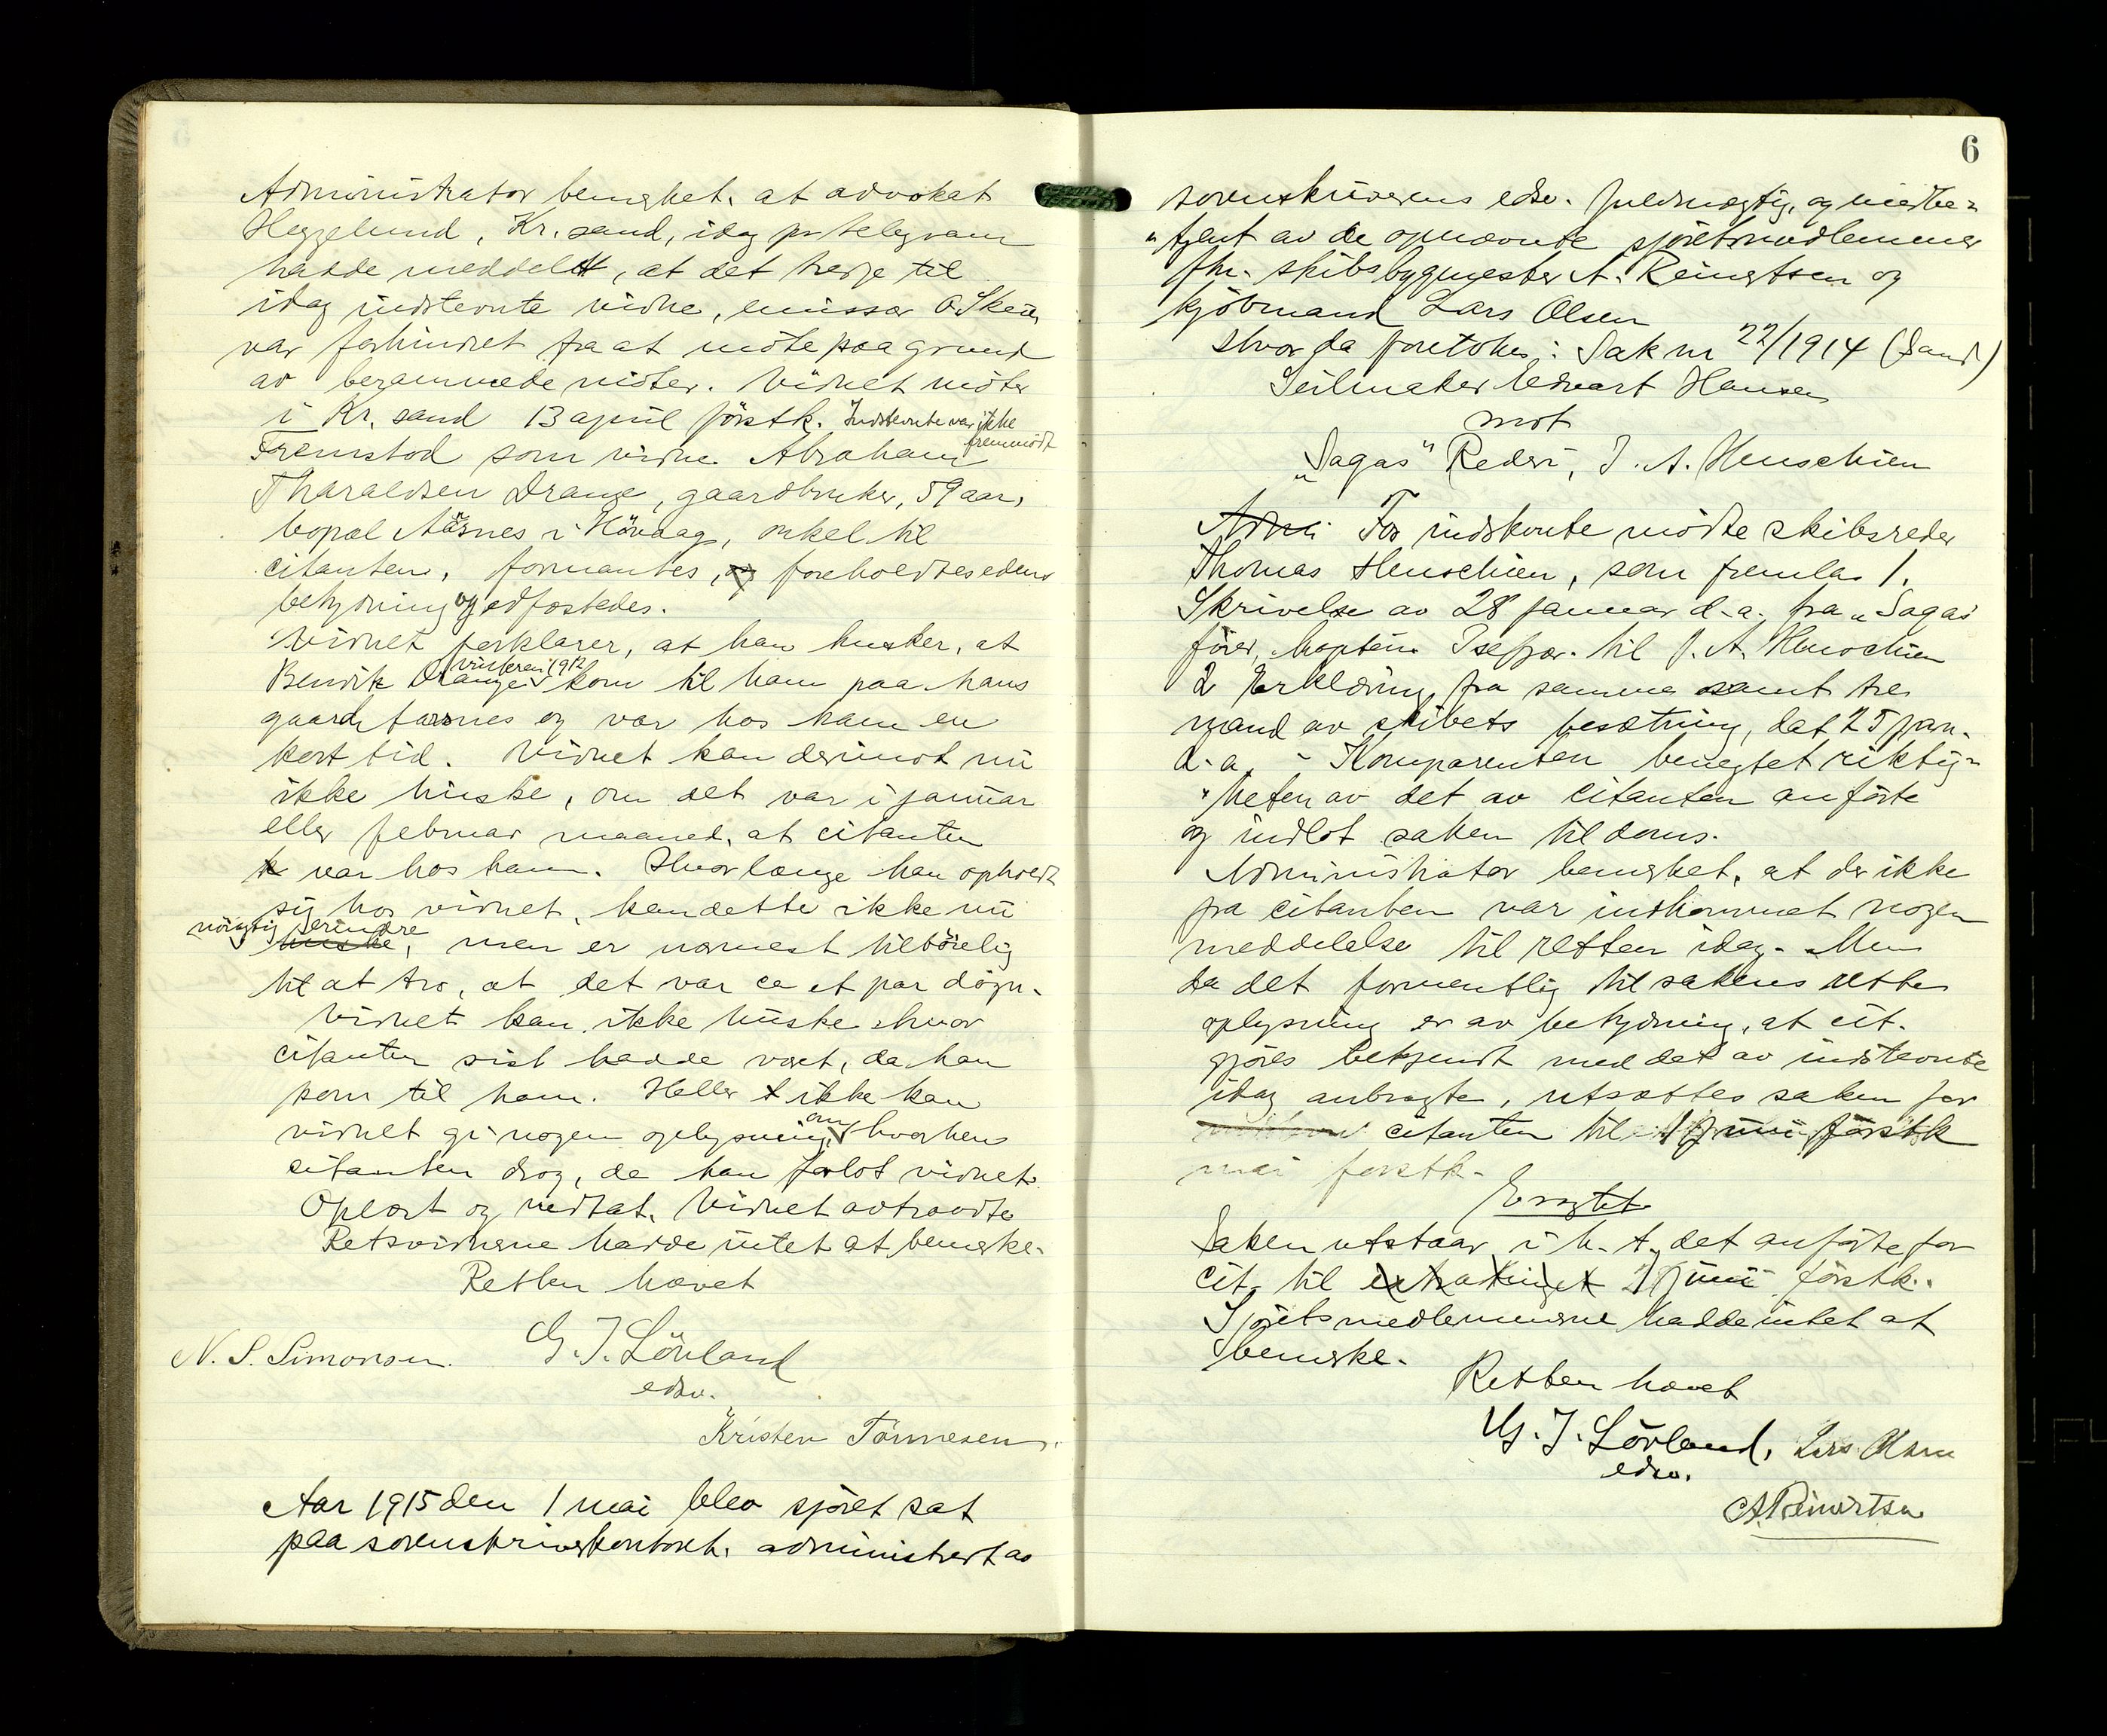 Administrator bemerket, at advokat
Heggelund, Kr.sand, idag pr telegram
hadde meddelt, at det tredje til
idag indstevnte vidne, emissær O. Skeie,
var forhindret fra at møte paa grund
av berammede møter. Vidnet møter
i Kr.sand 13 april førstk. Indstevnte var ikke
fremmødt
Fremstod som vidne Abraham
Tharaldsen Drange, gaardbruker, 59 aar,
bopæl Aasnes i Høvaag, onkel til
citanten, formantes, og foreholdtes edens
betydning og edfæstedes.
Vidnet forklarer, at han husker, at
vinteren 1912
Bendik Drange kom til ham paa hans
gaard, og var hos ham en
kort tid. Vidnet kan derimot nu
ikke huske, om det var i januar
eller februar maaned, at citanten
k var hos ham. Hvor længe han opholdt
sig hos vidnet, kan dette ikke nu
nöiagtig erindre
huske, men er nærmest tilböielig
til at tro, at det var ca et par døgn.
Vidnet kan ikke huske hvor
citanten sist hadde været, da han
kom til ham. Heller ikke kan
vidnet gi nogen oplysning om hvorhen
citanten drog, da han forlot vidnet.
Oplæst og vedtat. Vidnet avtraadte
Retsvidnerne hadde intet at bemerke.
Retten hævet
N. S. Simonsen. G. J. Lövland
edsv.
Kristen Tönnesen.
Aar 1915 den 1 mai blev sjöret sat
paa sorenskriverkontoret, administrert av
6
sorenskriverens edsv. fuldmægtig, og medbe-
tjent av de opnævnte sjöretsmedlemmer
fhv. skibsbygmester A. Reinertsen og
kjöbmand Lars Olsen
Hvor da foretokes: Sak nr 22/1914 (Sand)
Seilmaker Edvart Hansen
mot
"Sagas" Rederi, J. A. Henschien
Adm. For indstevnte mödte skibsreder
Thomas Henschien, som fremla 1.
Skrivelse av 28 januar d.a. fra "Sagas"
förer, kaptein til J. A. Henschien
2 Erklæring fra samme samt tre
mand av skibets besætning, dat 25 jan.
d.a. - Komparenten benegtet riktig-
heten av det av citanten anförte
og indlot saken til doms.
Administrator bemerket, at der ikke
fra citanten var indkommet nogen
meddelelse til retten idag. Men
da det formentlig til sakens rette
oplysning er av betydning, at cit.
gjöres bekjendt med det av indstevnte
idag anbragte, utsættes saken for
citanten til juni förstk
mai forstk.
Eragtet
Saken utstaar i h.t. det anförte for
cit. til extratinget juni förstk.
Sjöretsmedlemmerne hadde intet at
bemerke.
Retten hævet
G. J. Lövland, Lars Olsen
edsv.
A Reinertsen